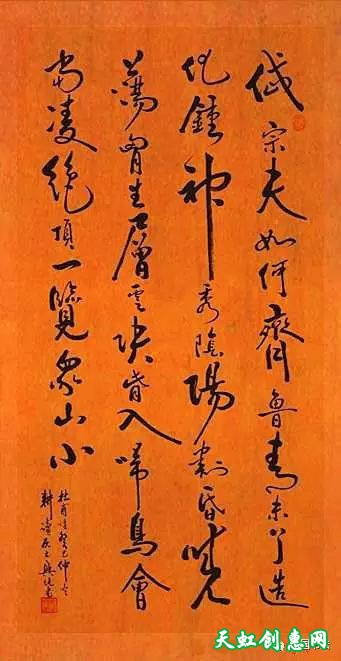 岱宗夫如何齊魯青未了造
化鍾神秀陰陽割昏曉
蕩胷生層雲決眥入歸鳥會
當凌絕頂一覽眾山小
杜甫詩癸巳仲
耕讀居
天虹创惠网